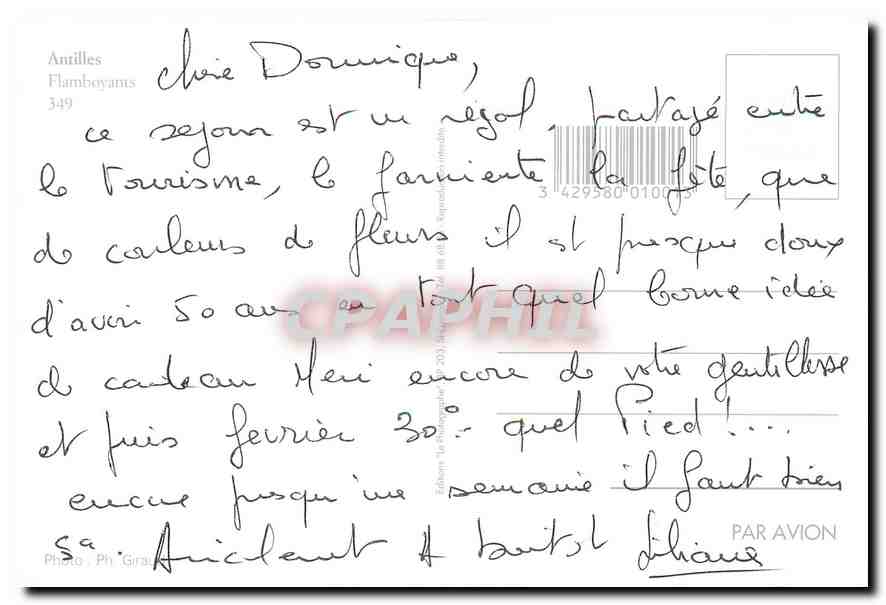 Antilles
Flamboyants
349
chère Dominique,
ce sejour est un régal, partagé entre
le tourisme, le farniente la fête, que
de couleurs de fleurs il est presque doux
d'avoir 50 ans en tout quel bonne idée
de cadeau Merci encore de votre gentillesse
et puis fevrier 30° quel Pied !....
encore jusqu'une semaine il faut bien
ça. Amicalement A bientôt Liliane
3 429580 01001
PAR AVION
Photo : Ph. Girau
Editions "Le Photographe" BP 203,
Reproduction interdite
CPAPHIL